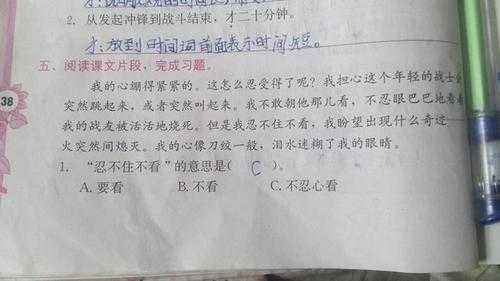 2. 从发起冲锋到战斗结束，才二十分钟。
才：放到时间词前面表示时间短。
五、阅读课文片段，完成习题。
我的心绷得紧紧的。这怎么忍受得了呢？我担心这个年轻的战士会
突然跳起来，或者突然叫起来。我不敢朝他那儿看，不忍眼巴巴地看着
我的战友被活活地烧死。但是我忍不住不看，我盼望出现什么奇迹——
火突然间熄灭。我的心像刀绞一般，泪水迷糊了我的眼睛。
1. “忍不住不看”的意思是( C )。
A. 要看 B. 不看 C. 不忍心看
38